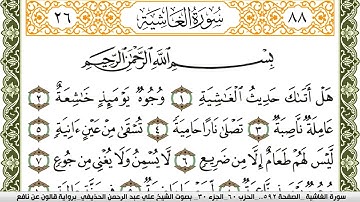 ٨٨ سُورَةُ الغَاشِيَةِ ٢٦
بِسْمِ اللَّهِ الرَّحْمَٰنِ الرَّحِيمِ
هَلْ أَتَاكَ حَدِيثُ الْغَاشِيَةِ ١ وُجُوهٌ يَوْمَئِذٍ خَاشِعَةٌ ٢
عَامِلَةٌ نَاصِبَةٌ ٣ تَصْلَىٰ نَارًا حَامِيَةً ٤ تُسْقَىٰ مِنْ عَيْنٍ ءَانِيَةٍ ٥
لَيْسَ لَهُمْ طَعَامٌ إِلَّا مِنْ ضَرِيعٍ ٦ لَا يُسْمِنُ وَلَا يُغْنِي مِنْ جُوعٍ ٧
سورة الغاشية . الصفحة ٥٩٢ . الحزب ٦٠ الجزء ٣٠ . بصوت الشيخ علي عبد الرحمن الحذيفي . برواية قالون عن نافع